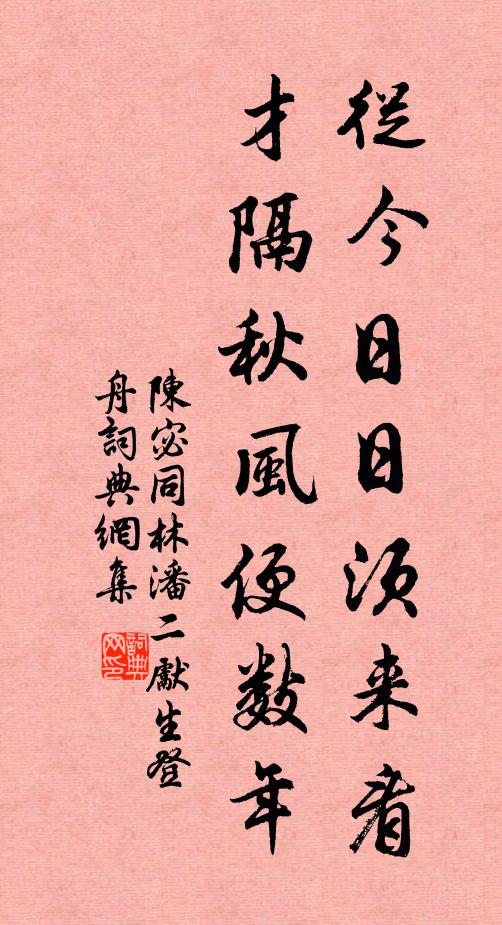 從今日日須来看
才隔秋風便数年
陳宓同林潘二獻生登
舟詞典網集
詞典网印